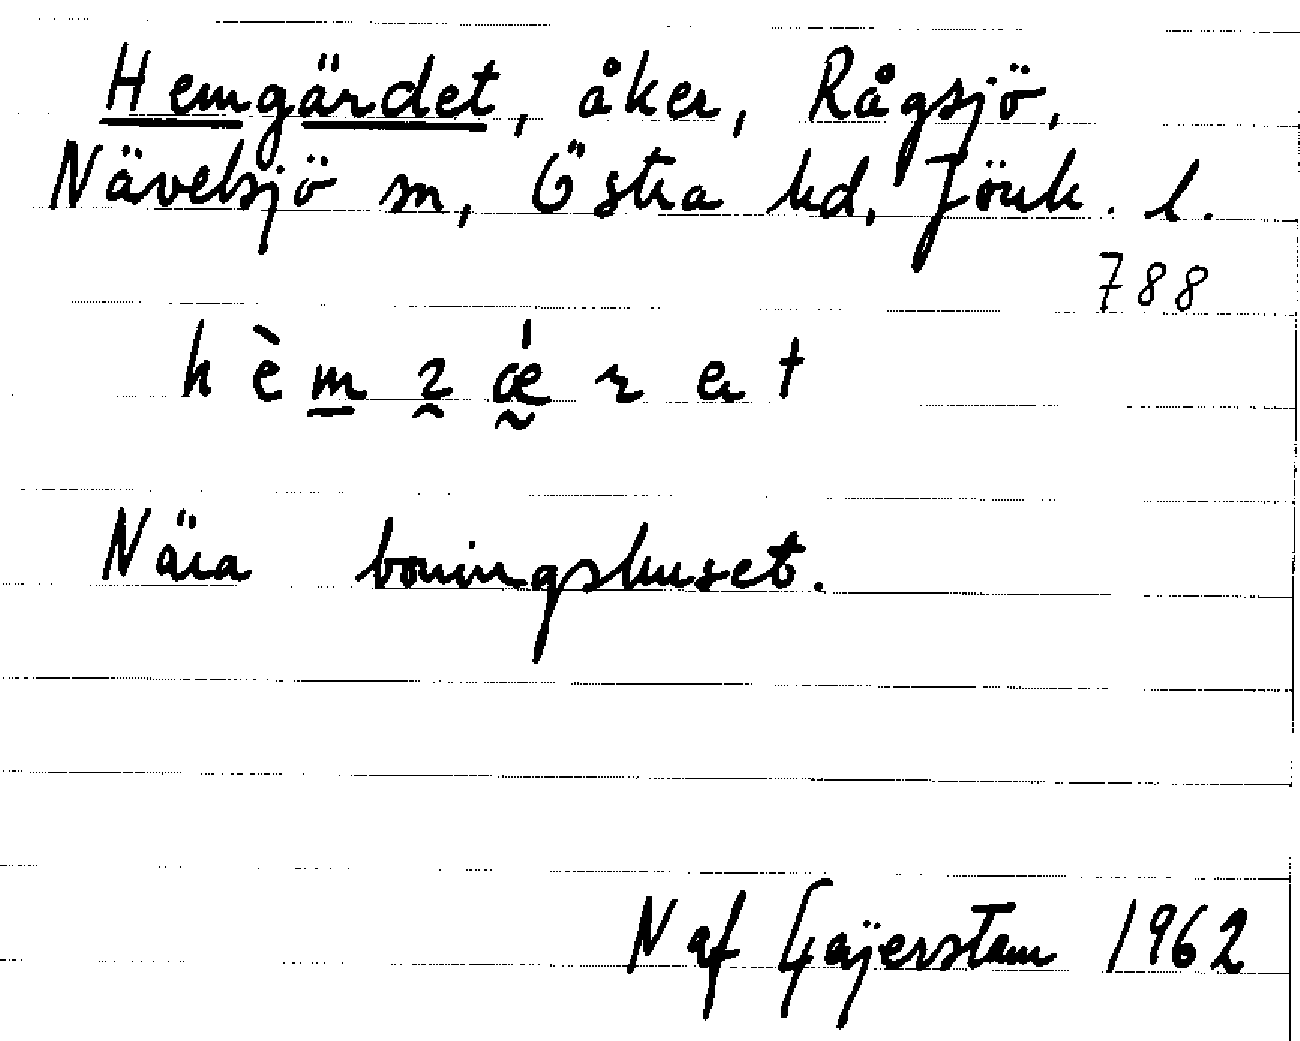 Hemgärdet, åker, Rågsjö,
Nävelsjö sn, Östra hd, Jönk. l.
788
Nära boningshuset.
N af Geijerstam 1962